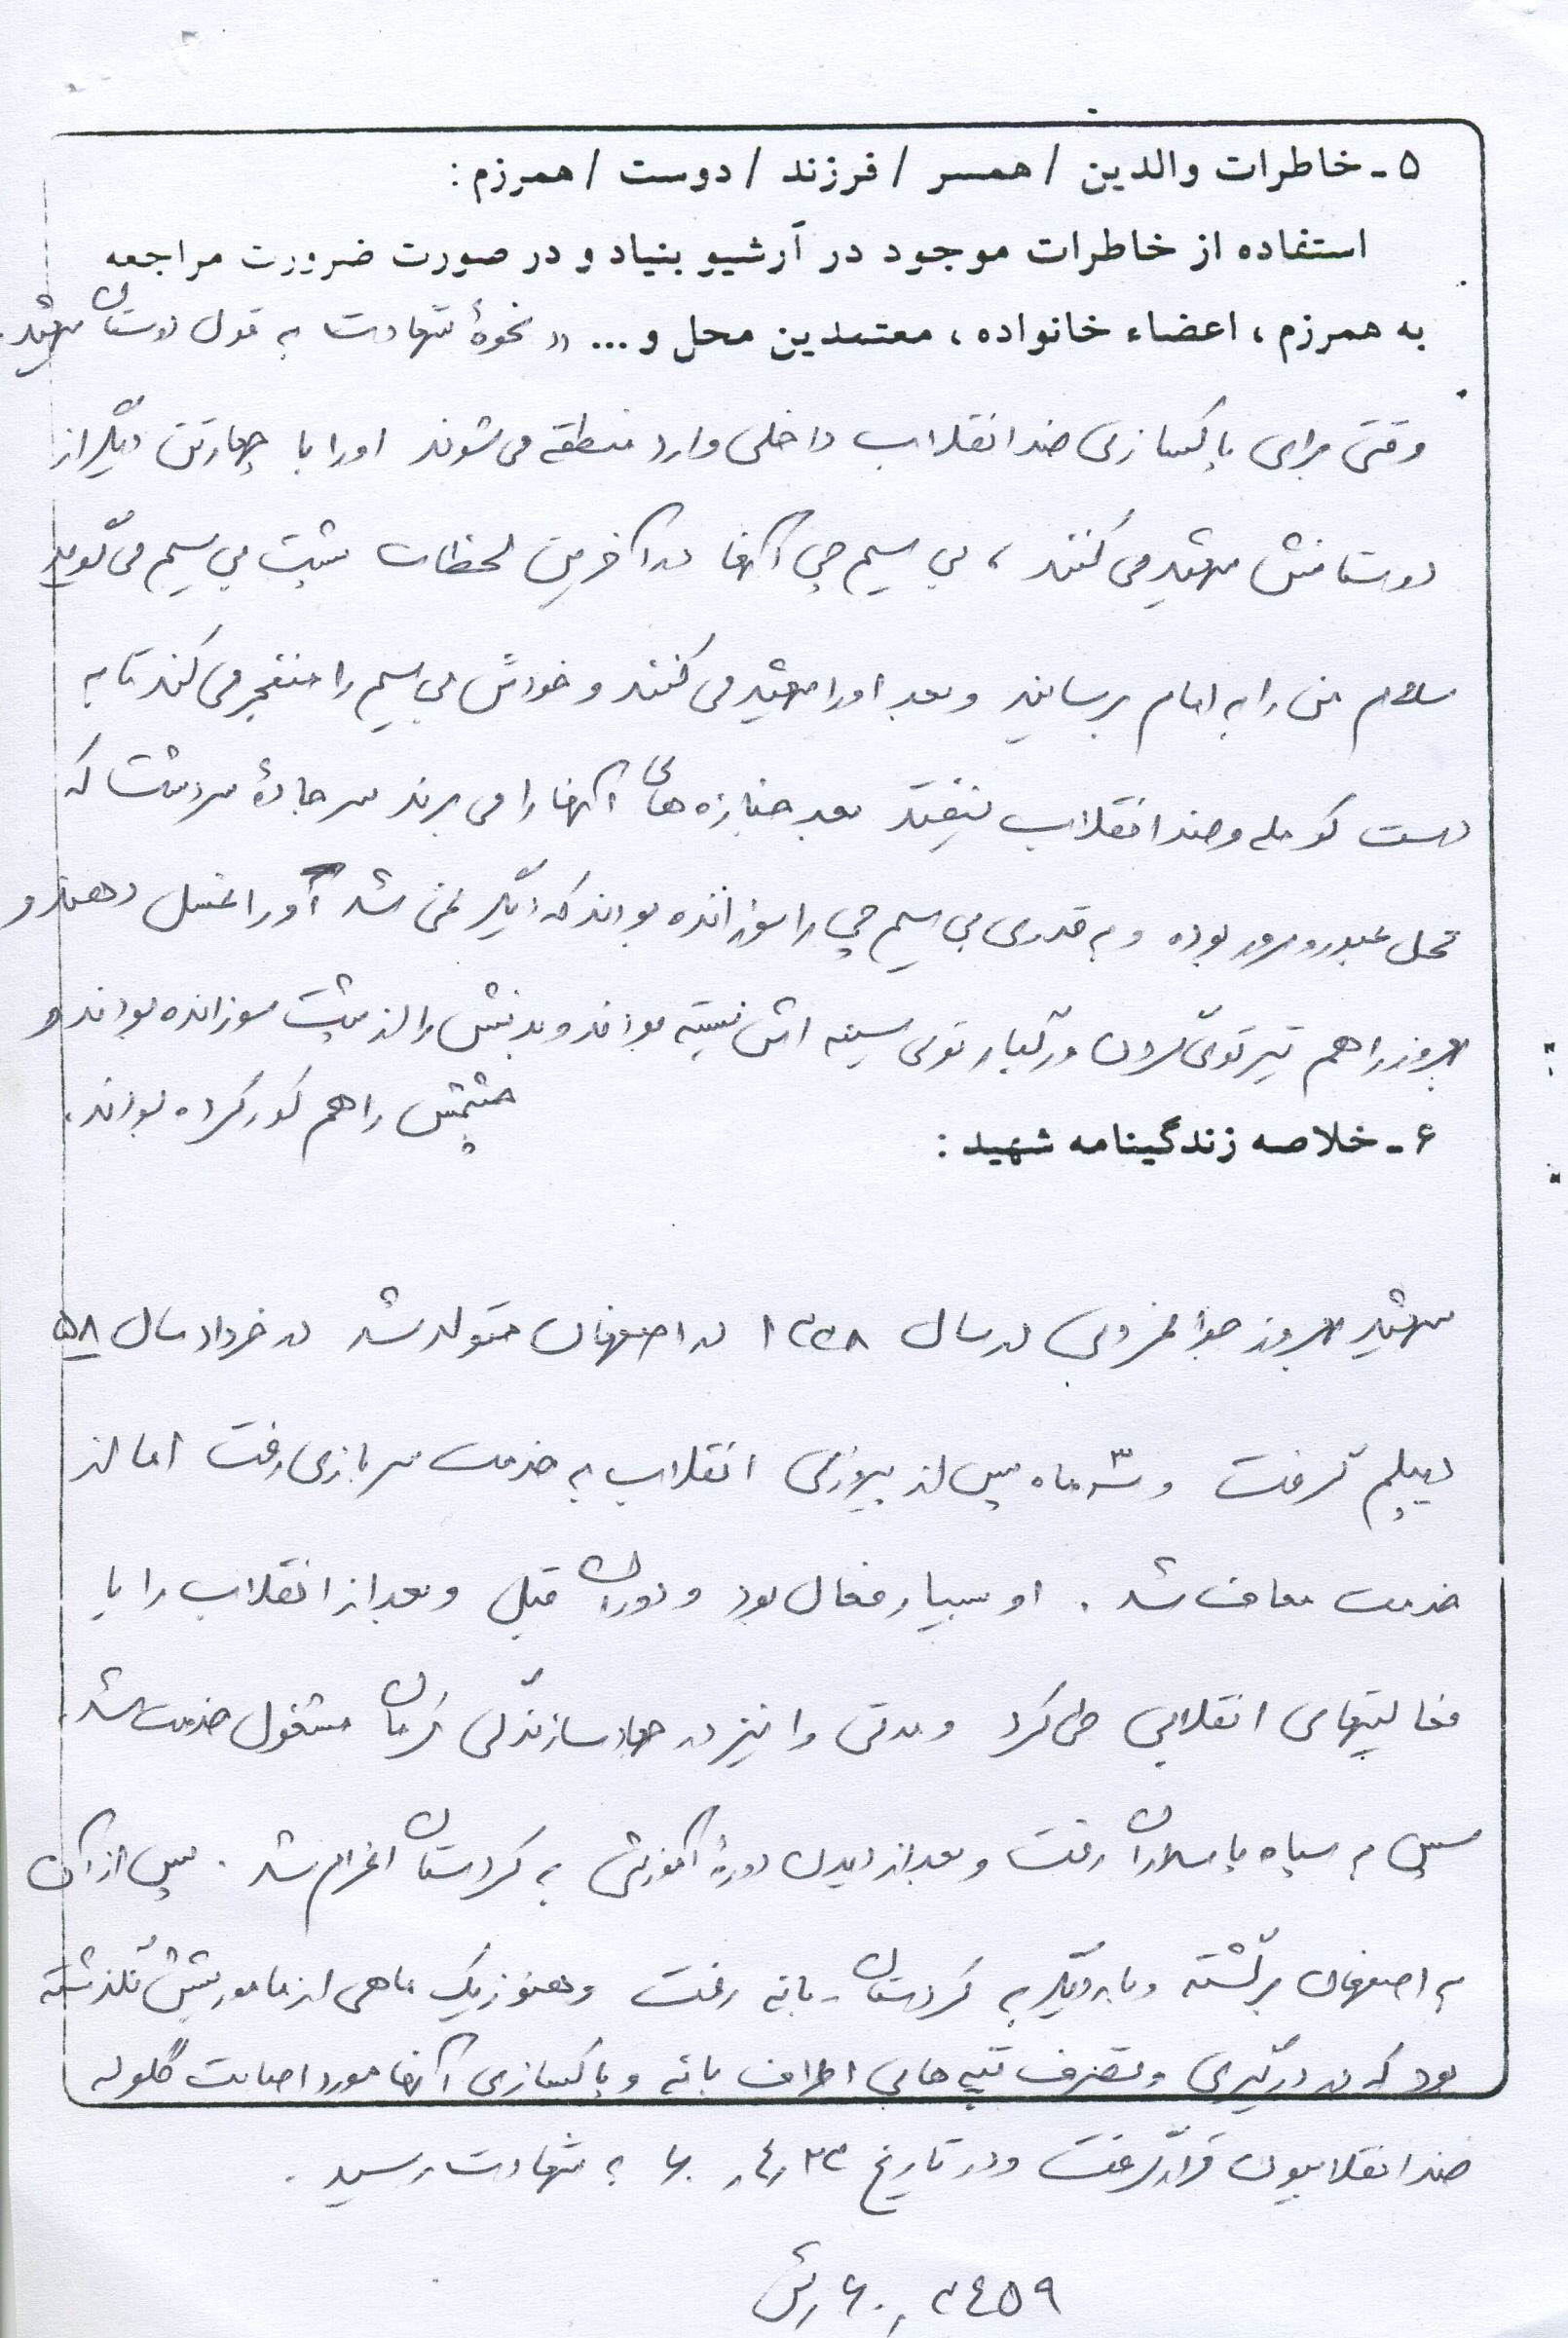 ۵ - خاطرات والدین / همسر / فرزند / دوست / همرزم :
استفاده از خاطرات موجود در آرشیو بنیاد و در صورت ضرورت مراجعه
به همرزم ، اعضاء خانواده ، معتمدین محل و ... « نحوهٔ شهادت به قول دوستان شهید.
وقتی برای پاکسازی ضد انقلاب داخلی وارد منطقه می شوند او را با چهارتن دیگر از
دوستانش شهید می کنند ، بی سیم چی آنها در آخرین لحظات پشت بی سیم می گوید
سلام من را به امام برسانید و بعد او را شهید می کنند و خودش بی سیم را منفجر می کند تا به
دست کومله و ضد انقلاب نیفتد بعد جنازه های آنها را می برند سر جادهٔ سردشت که
محل عبور و مرور بوده و به قدری بی سیم چی را سوزانده بودند که دیگر نمی شد او را غسل دهند و
بهروز را هم تیر توی گردن و رگبار توی سینه اش نیسته بودند و بدنش را از پشت سوزانده بودند و
چشمش را هم کور کرده بودند .
۶ - خلاصه زندگینامه شهید :
شهید بهروز جوانمردی در سال ۱۳۳۸ در اصفهان متولد شد در خرداد سال ۵۸
دیپلم گرفت و ۳ ماه پس از پیروزی انقلاب به خدمت سربازی رفت اما از
خدمت معاف شد . او بسیار فعال بود و دوران قبل و بعد از انقلاب را با
فعالیتهای انقلابی طی کرد و مدتی را نیز در جهاد سازندگی کرمان مشغول خدمت شد.
سپس به سپاه پاسداران رفت و بعد از دیدن دورهٔ آموزشی به کردستان اعزام شد . پس از آن
به اصفهان برگشته و بار دیگر به کردستان - بانه رفت و هنوز یک ماهی از ماموریتش نگذشته
بود که در درگیری و تصرف تپه های اطراف بانه و پاکسازی آنها مورد اصابت گلوله
ضد انقلابیون قرار گرفت و در تاریخ ۲۳ ر۴ر ۶۰ به شهادت رسید .
۳۴۵۹ ر ۶۰ رش